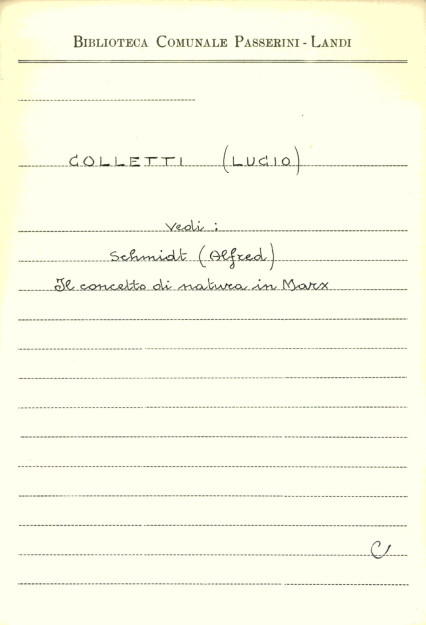 BIBLIOTECA COMUNALE PASSERINI - LANDI
COLLETTI (LUCIO)
Vedi :
Schmidt (Alfred)
Il concetto di natura in Marx
C